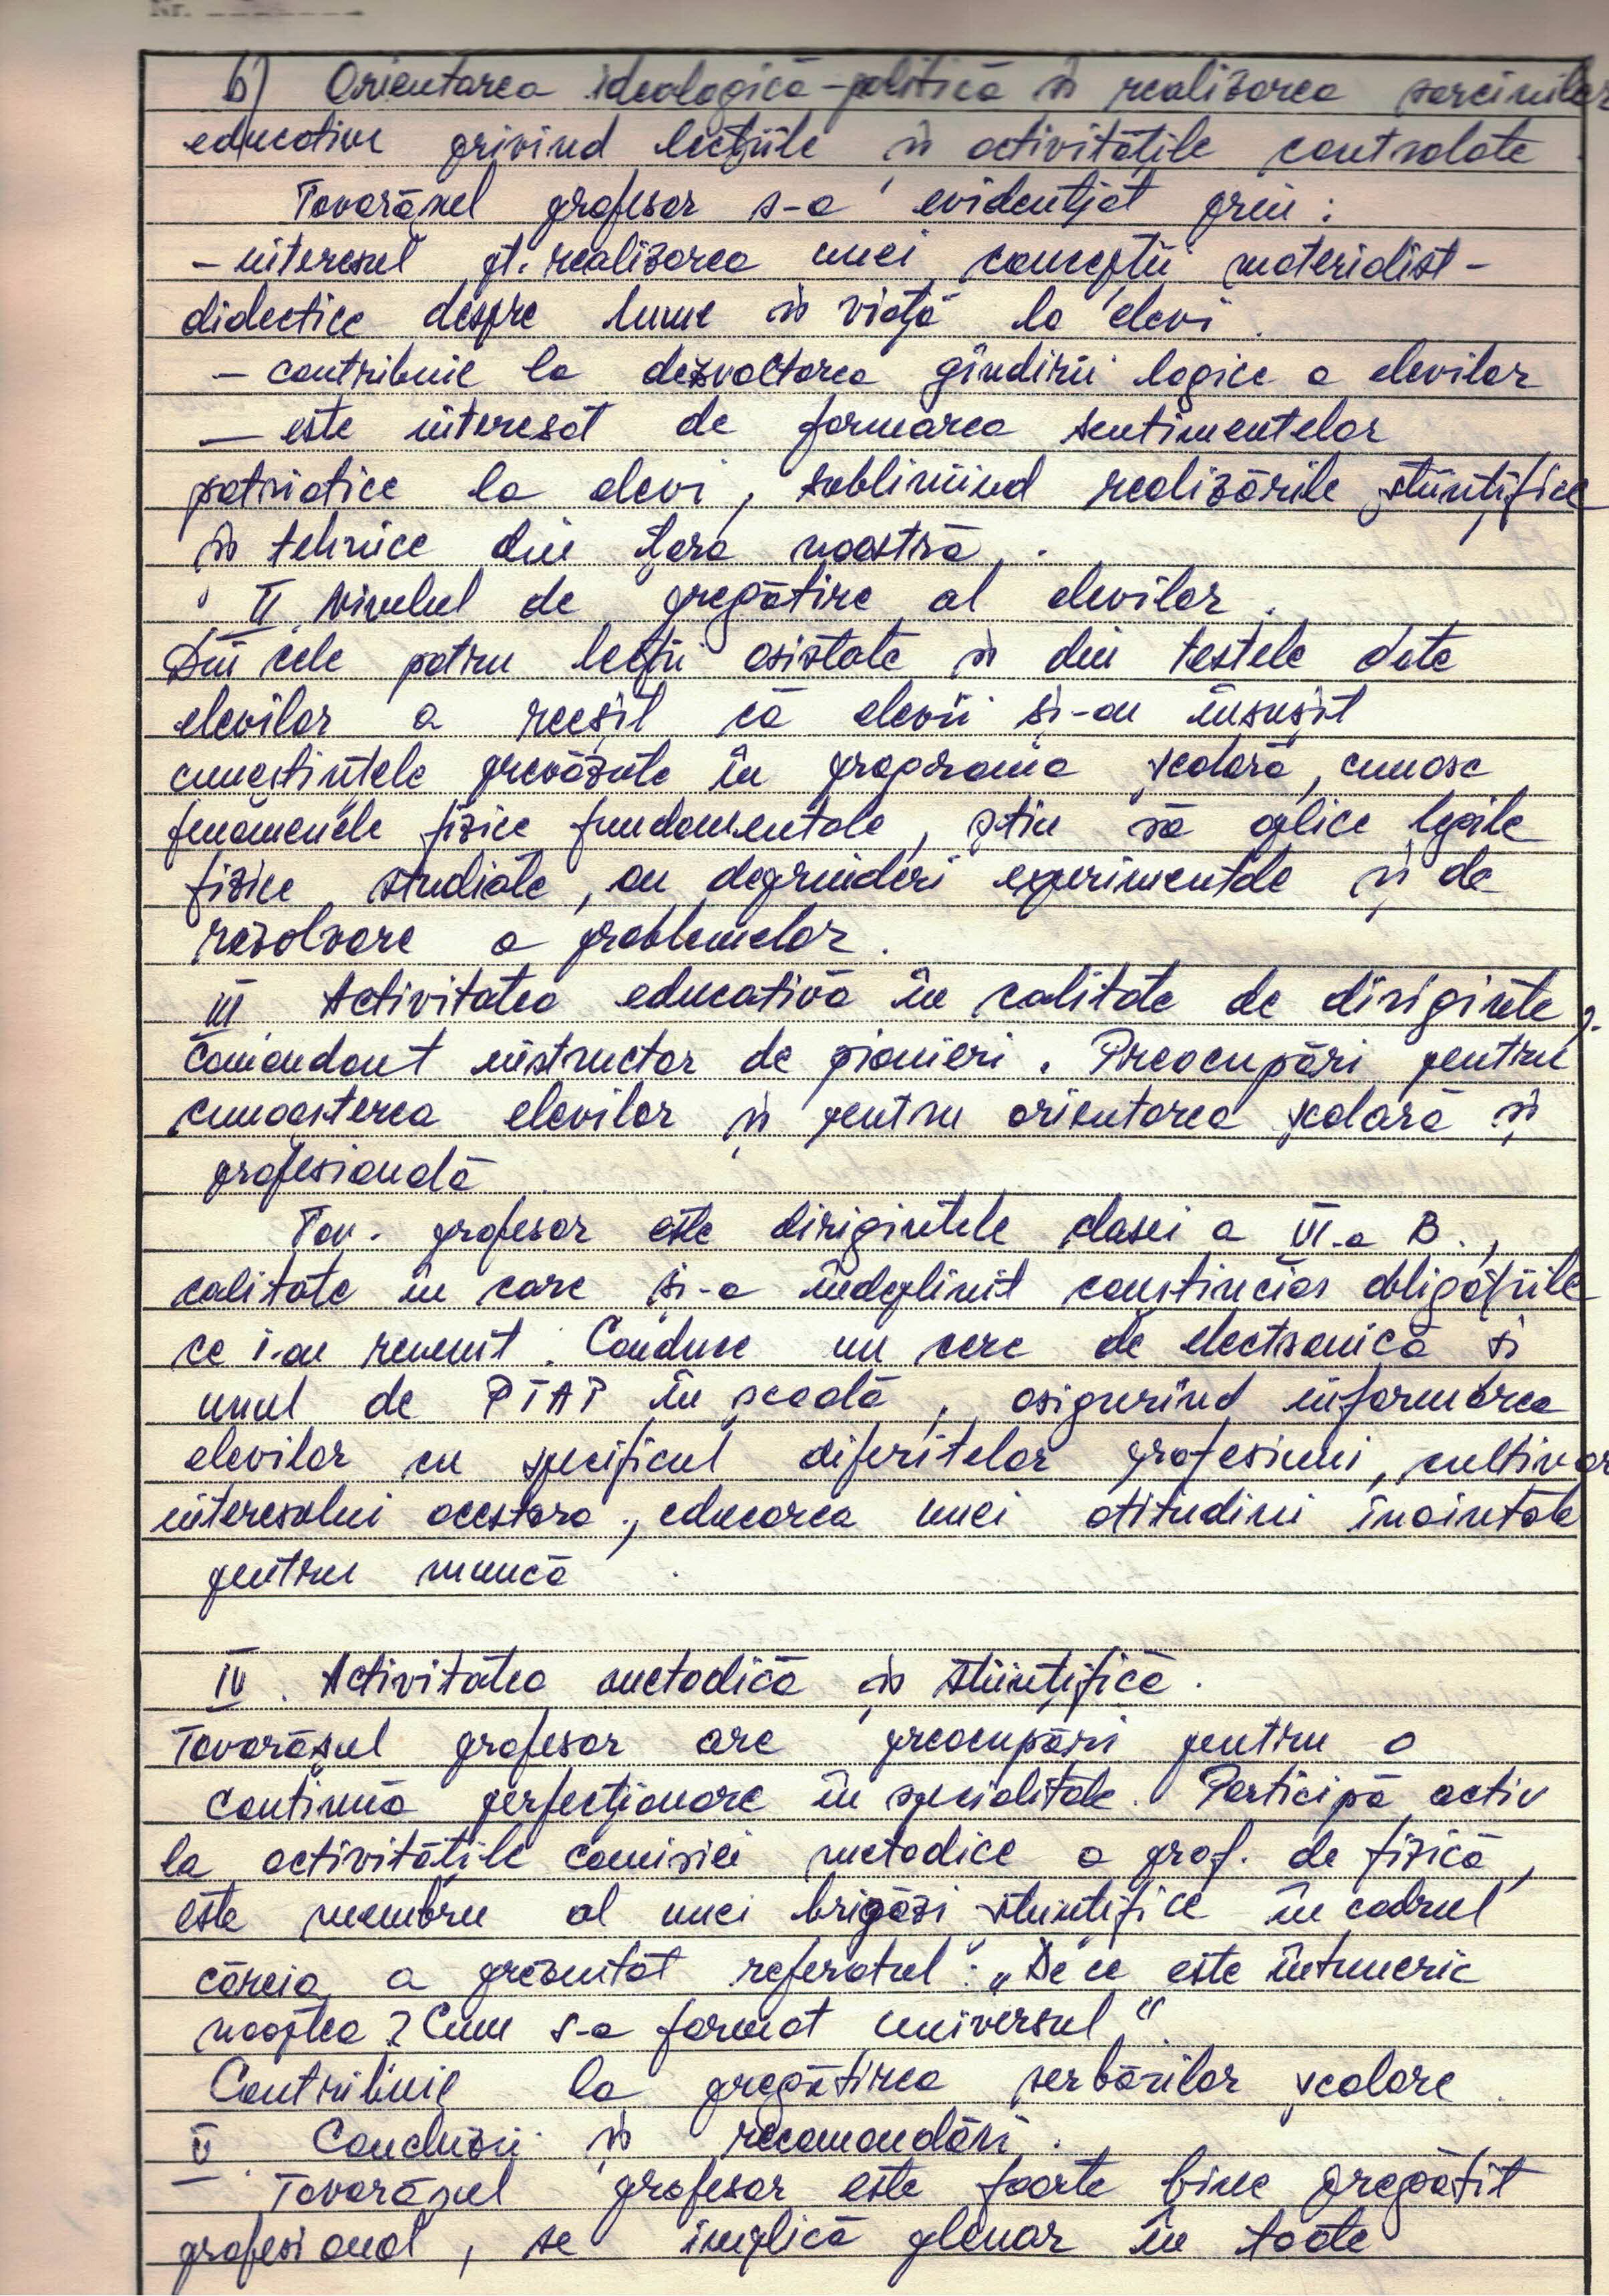 Nr.
b) Orientarea ideologică-politică și realizarea sarcinilor
educative privind lecțiile și activitățile controlate
Tovarășul profesor s-a evidențiat prin :
- interesul pt. realizarea unei concepții materialist -
dialectice despre lume și viață la elevi .
- contribuie la dezvoltarea gîndirii logice a elevilor
- este interesat de formarea sentimentelor
patriotice la elevi , subliniind realizările științifice
și tehnice din țara noastră .
II Nivelul de pregătire al elevilor .
Din cele patru lecții asistate și din testele date
elevilor a reeșit că elevii și-au însușit
cunoștințele prevăzute în programa școlară , cunosc
fenomenele fizice fundamentale , știu să aplice legile
fizice studiate , au deprinderi experimentale și de
rezolvare a problemelor .
III Activitatea educativă în calitate de diriginte ,
comandant instructor de pionieri . Preocupări pentru
cunoașterea elevilor și pentru orientarea școlară și
profesională
Tov. profesor este dirigintele clasei a VI-a B. ,
calitate în care și-a îndeplinit conștincios obligațiile
ce i-au revenit . Conduce un cerc de electronică și
unul de PTAP în școală , asigurînd informarea
elevilor cu specificul diferitelor profesiuni , cultivar
interesului acestora , educarea unei atitudini înaintate
pentru muncă .
IV . Activitatea metodică și științifică .
Tovarășul profesor are preocupări pentru o
continuă perfecționare în specialitate . Participă activ
la activitățile comisiei metodice a prof. de fizică ,
este membru al unei brigăzi științifice în cadrul
căreia a prezentat referatul : „De ce este întuneric
noaptea ? Cum s-a format universul "
Contribuie la pregătirea serbărilor școlare .
V . Concluzii și recomandări .
Tovarășul profesor este foarte bine pregătit
profesional , se implică plenar în toate